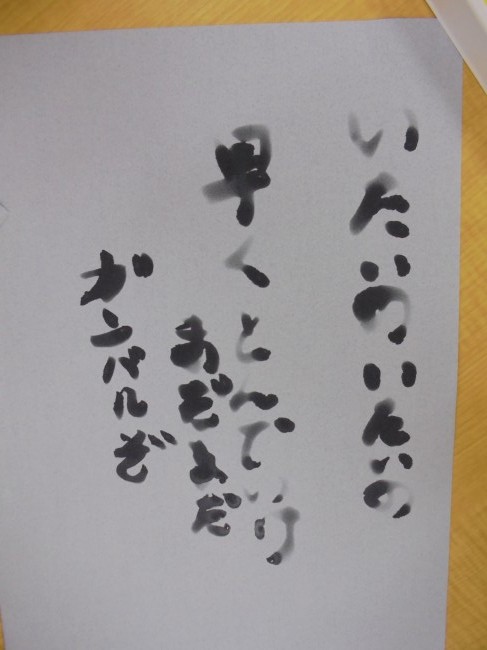 いたいのいたいの
早くとんでいけ
ガンバルぞ